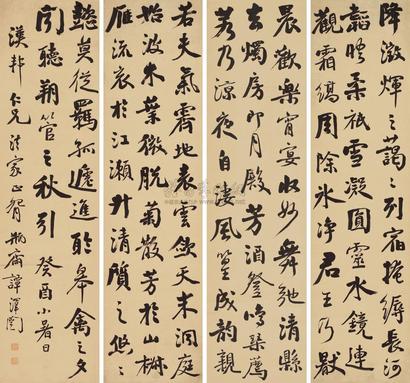 降澂煇之藹〻列宿掩縟長河
韜映柔祇雪凝圓靈水鏡連
觀霜縞周除冰净君王乃厭
晨歡樂宵宴收妙舞弛清縣
去燭房即月殿芳酒登鳴琴薦
若乃涼夜自淒風篁成韻親
若夫氣霽地表雲斂天末洞庭
始波木葉微脫菊散芳於山椒
雁流哀於江瀨升清質之悠〻
懿莫從羈孤遞進聆皋禽之夕
聞聽朔管之秋引 癸酉小暑日
漢 仁兄法家正 瓶齋譚澤闓